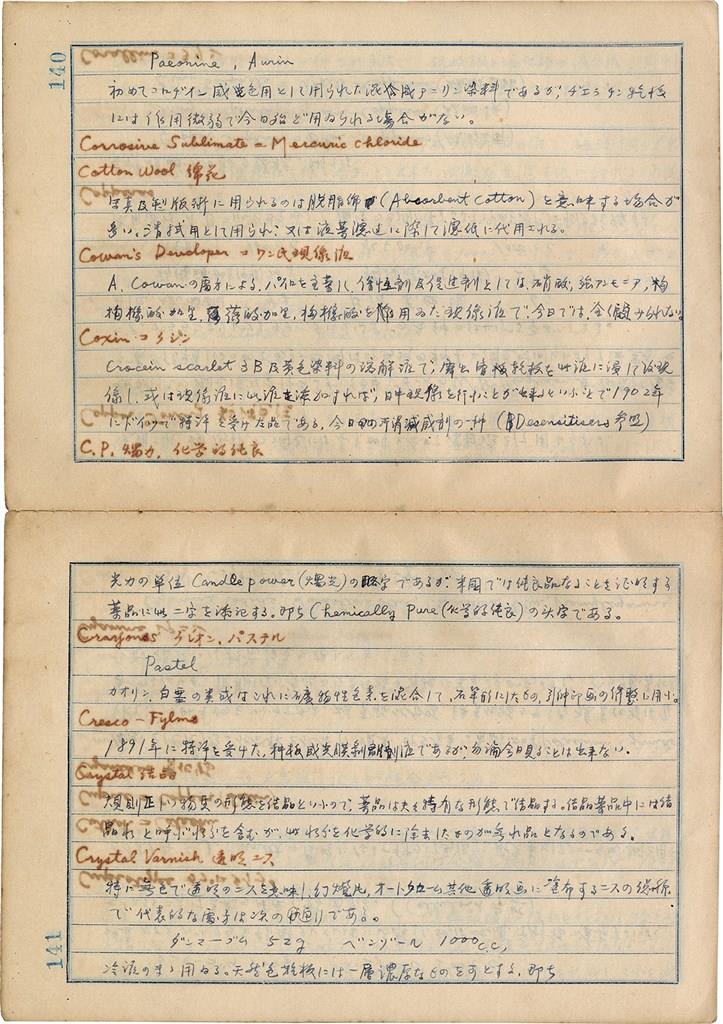 140
Paeonine, Aurin
初めてコロヂオン感色用として用られた混合感アニリン染料であるが、ゼラチン乾板
には作用微弱で今日殆ど用ゐられる場合がない。
Corrosive Sublimate = Mercuric chloride
Cotton Wool 綿花
写真及製版術に用られるのは脱脂綿(Absorbent cotton)を意味する場合が
多い。清拭用として用られ又は液等濾過に際して濾紙に代用される。
Cowan's Developer コワン氏現像液
A. Cowanの
現像液で、今日では全く顧みられない。
Coxin コクシン
Crocein scarlet 3B及黄色染料の溶解液で、露出後乾板を此液に浸して後現
像し、或は現像液に此液を添加すれば、日中現像を行ふことが出来るといふことで1902年
にドイツで特許を受けた品である。今日の減感剤の一種 (Desensitisers 参照)
C.P. 燭力、化学的純良
光力の単位 Candle power(燭光)の略字であるが米国では純良品なることを証明する
薬品に此二字を添記する。即ち Chemically Pure (化学的純良)の頭字である。
Crayons クレオン、パステル
Pastel
カオリン、白堊の類或はこれに礦物性色素を混合して、石筆形にしたもの、引伸印画の修整に用ふ。
Cresco-Fylma
1891年に特許を受けた、
が、勿論今日見ることは出来ない。
Crystal 結晶
規則正しい物質の形態を結晶といふので、薬品は夫々特有な形態で結晶する。結晶薬品中には結
晶水と呼ぶ水分を含むが、此水分を化学的に除去したものが無水品となるのである。
Crystal Varnish 透明ニス
特に無色で透明のニスを意味し、幻燈板、オートクローム其他透明画に塗布するニスの総称
で代表的な処方は次の通りである。
ダンマーゴム 52g ベンゾール 1000c.c.
冷液のまゝ用ゐる。天然色乾板には一層濃厚なものを可とする。即ち
141